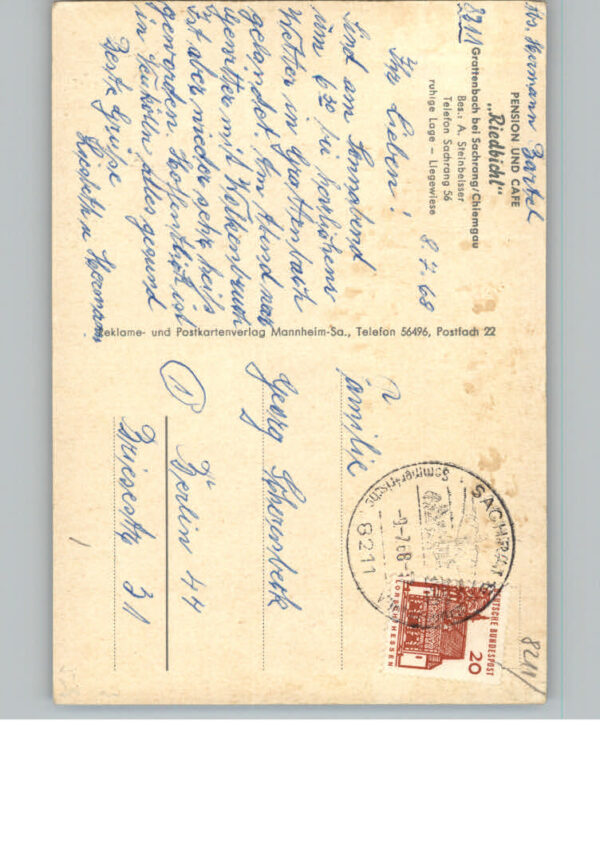 Abs. Hermann Bartel
PENSION UND CAFE
„Riedbichl“
8211 Grattenbach bei Sachrang/Chiemgau
Bes.: A. Steinbeisser
Telefon Sachrang 56
ruhige Lage – Liegewiese
8.7.68
Ihr Lieben!
Sind am Sonnabend
um 6³⁰ bei herrlichem
Wetter in Grattenbach
gelandet. Am Abend war
Gewitter mit Wolkenbruch
Ist aber wieder sehr heiß
geworden. Hoffentlich ist
in Neukölln alles gesund
Beste Grüße
Lisbeth u. Hermann
Reklame- und Postkartenverlag Mannheim-Sa., Telefon 56496, Postfach 22
Familie
Georg Scherenberk
1 Berlin 44
Briesestr. 31
SACHRANG
Sommerfrische
-9-7.68-
8211
DEUTSCHE BUNDESPOST
20
LORSCH/HESSEN
8211/